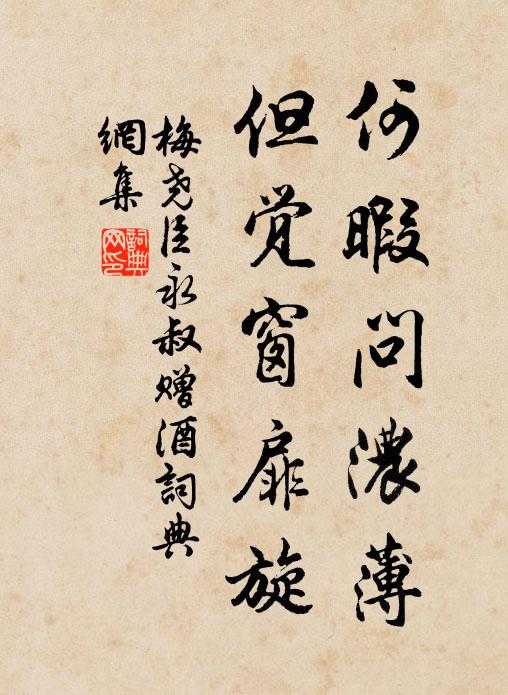 何暇問濃薄
但觉窗扉旋
梅尧臣永叔赠酒詞典
網集
詞典
网印